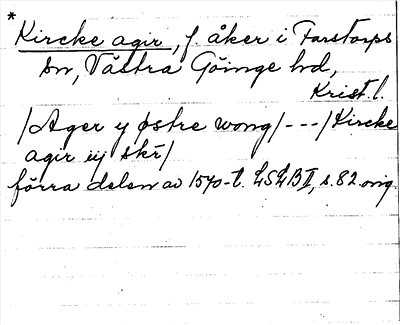 *
Kircke agir, f åker i Farstorps
sn, Västra Göinge hd,
Krist. l.
/Ager y østre wong/ - - - /Kircke
agir iij skr/
förra delen av 1570-t. LSLB II, s. 82 orig.